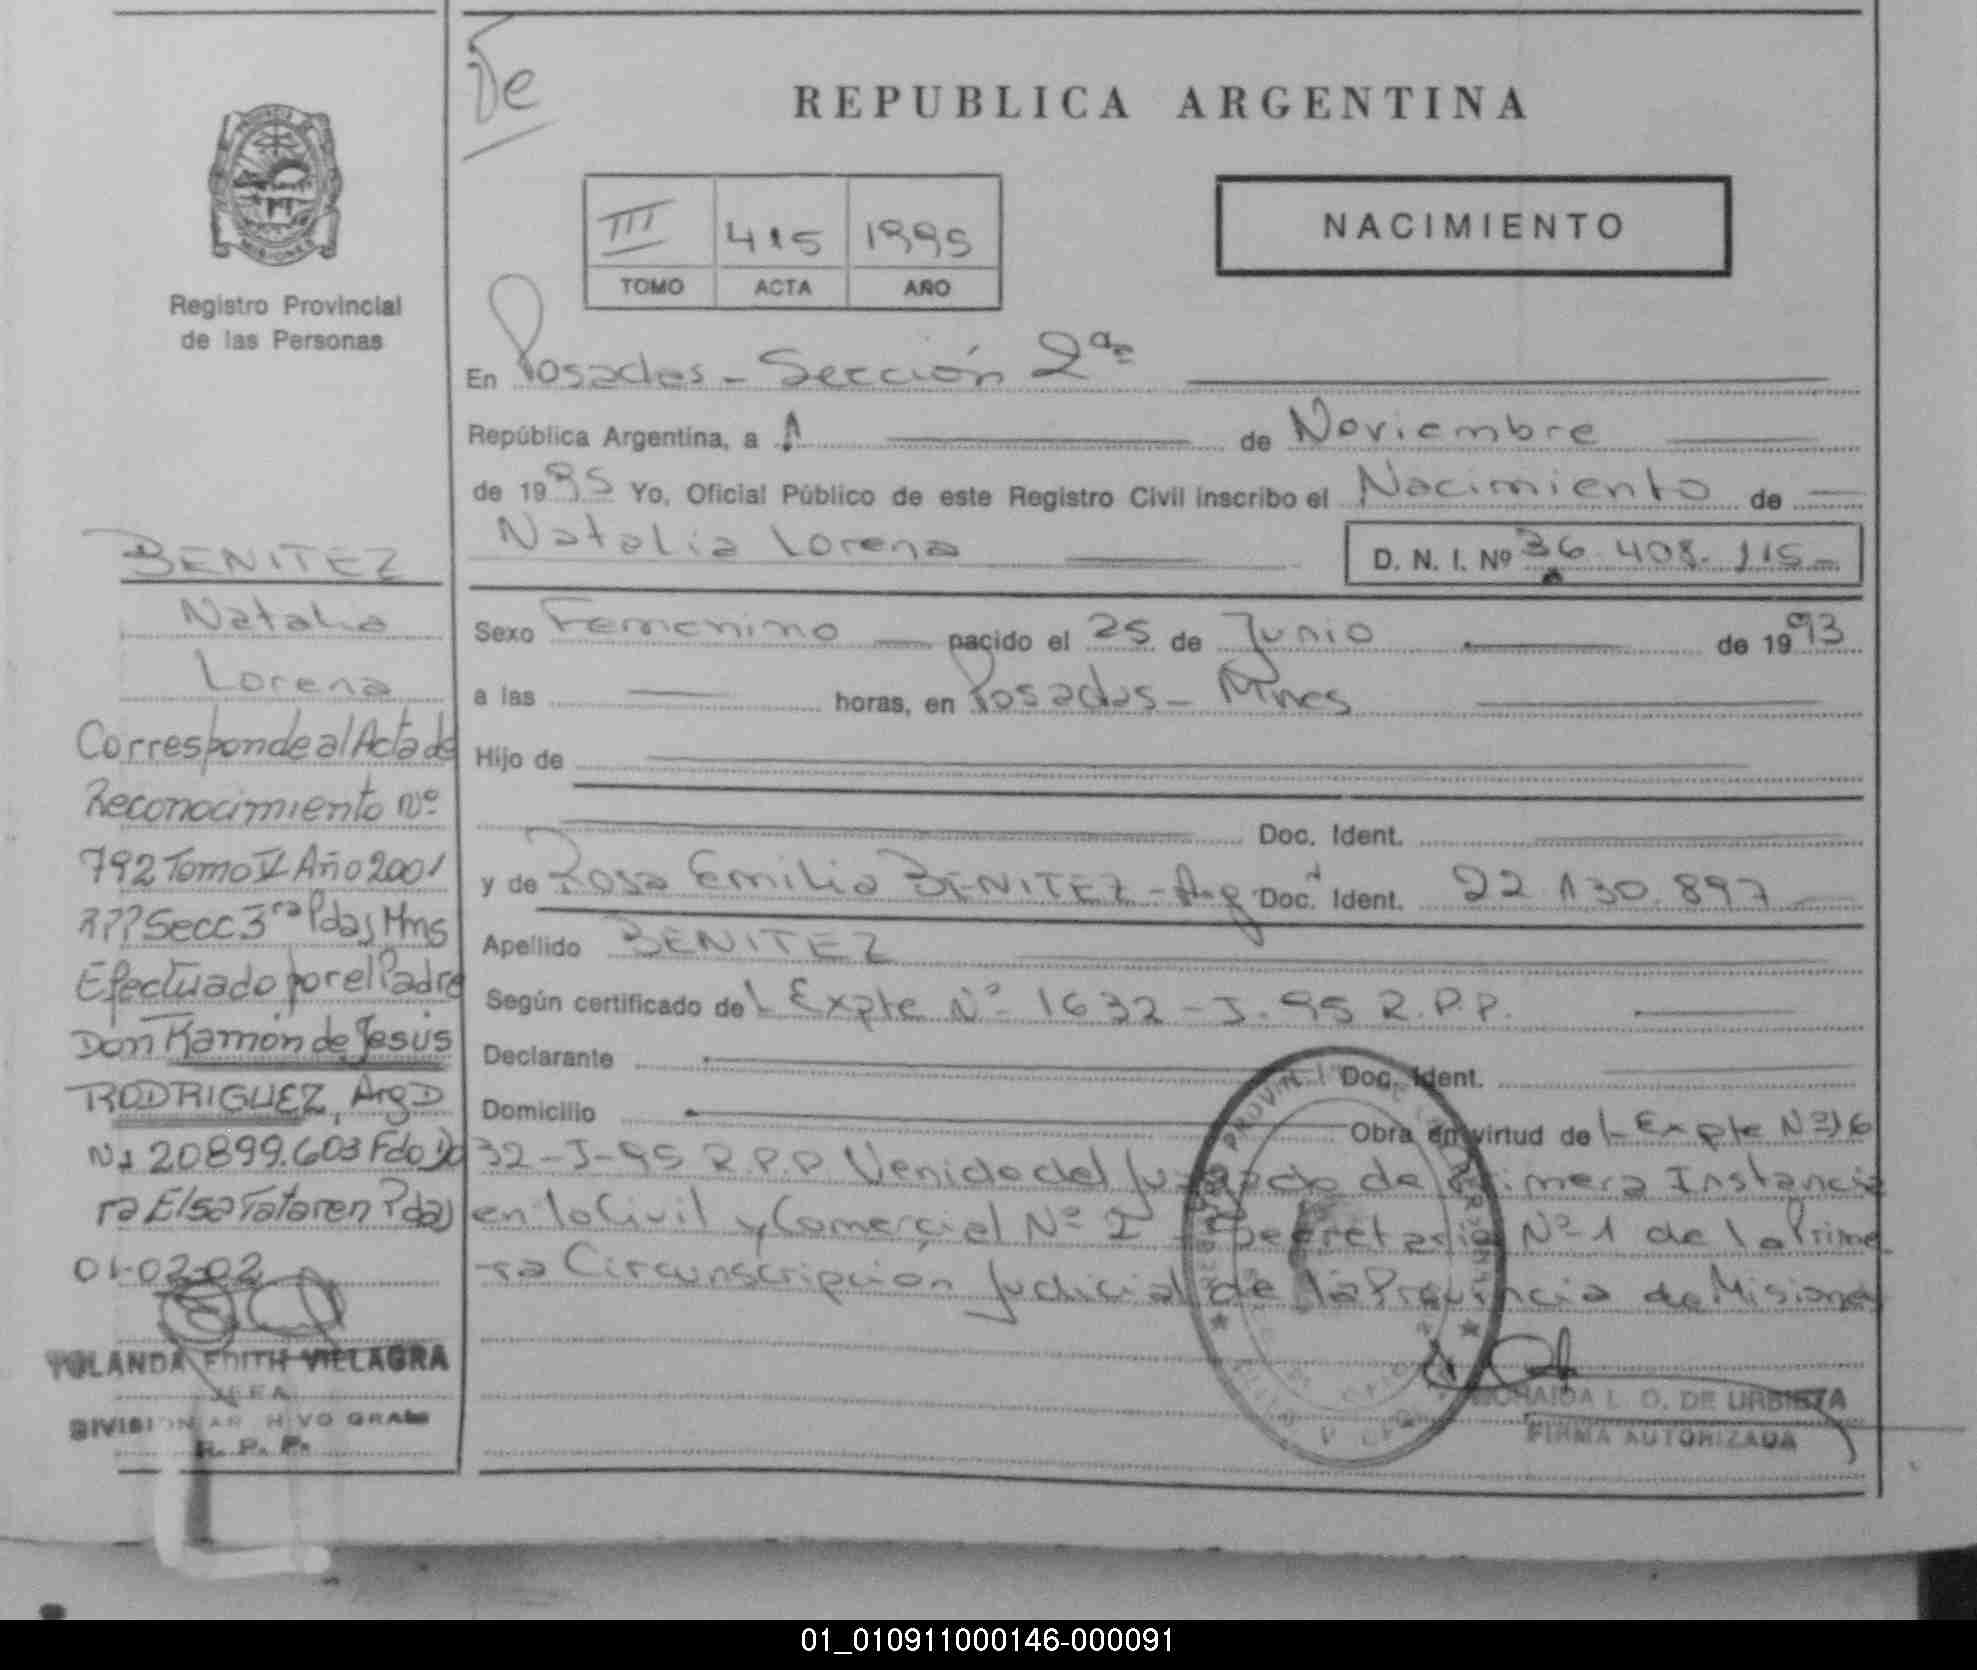 De
REPUBLICA ARGENTINA
III 415 1995
TOMO ACTA AÑO
NACIMIENTO
MISIONES
Registro Provincial
de las Personas
En Posadas - Sección 2ª
República Argentina, a 1 de Noviembre
de 1995 Yo, Oficial Público de este Registro Civil inscribo el Nacimiento de
Natalia Lorena D. N. I. Nº 36.408.115-
Sexo Femenino nacido el 25 de Junio de 1993
a las horas, en Posadas - Mnes
Hijo de
Doc. Ident.
y de Rosa Emilia BENITEZ - Arg Doc. Ident. 22.130.897
Apellido BENITEZ
Según certificado de L Expte Nº 1632 - J - 95 R.P.P.
Declarante Doc. Ident.
Domicilio Obra en virtud de L Expte Nº 16
32-J-95 R.P.P Venido del Juzgado de Primera Instancia
en lo Civil y Comercial Nº 2 Secretaria Nº 1 de la Prime
ra Circunscripción Judicial de la Provincia de Misiones
DE URBIETA
FIRMA AUTORIZADA
BENITEZ
Natalia
Lorena
Corresponde al Acta de
Reconocimiento Nº
792 Tomo V Año 2001
RPP Secc 3ra Pdas Mns
Efectuado por el Padre
Don Ramón de Jesús
RODRIGUEZ, Arg D
Nº 20899.603 Fdo Do
ra Elsa Tataren Pdas
01-02-02
YOLANDA EDITH VILLAGRA
JEFA
DIVISION ARCHIVO GRAL
R. P. P.
01_010911000146-000091